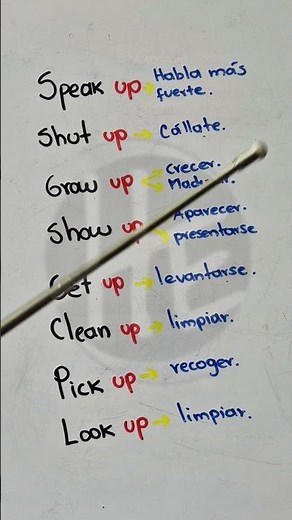 Speak up → Habla más
fuerte.
Shut up → Cállate.
Grow up → crecer.
Show up → Aparecer.
presentarse
Get up → levantarse.
Clean up → limpiar.
Pick up → recoger.
Look up → limpiar.